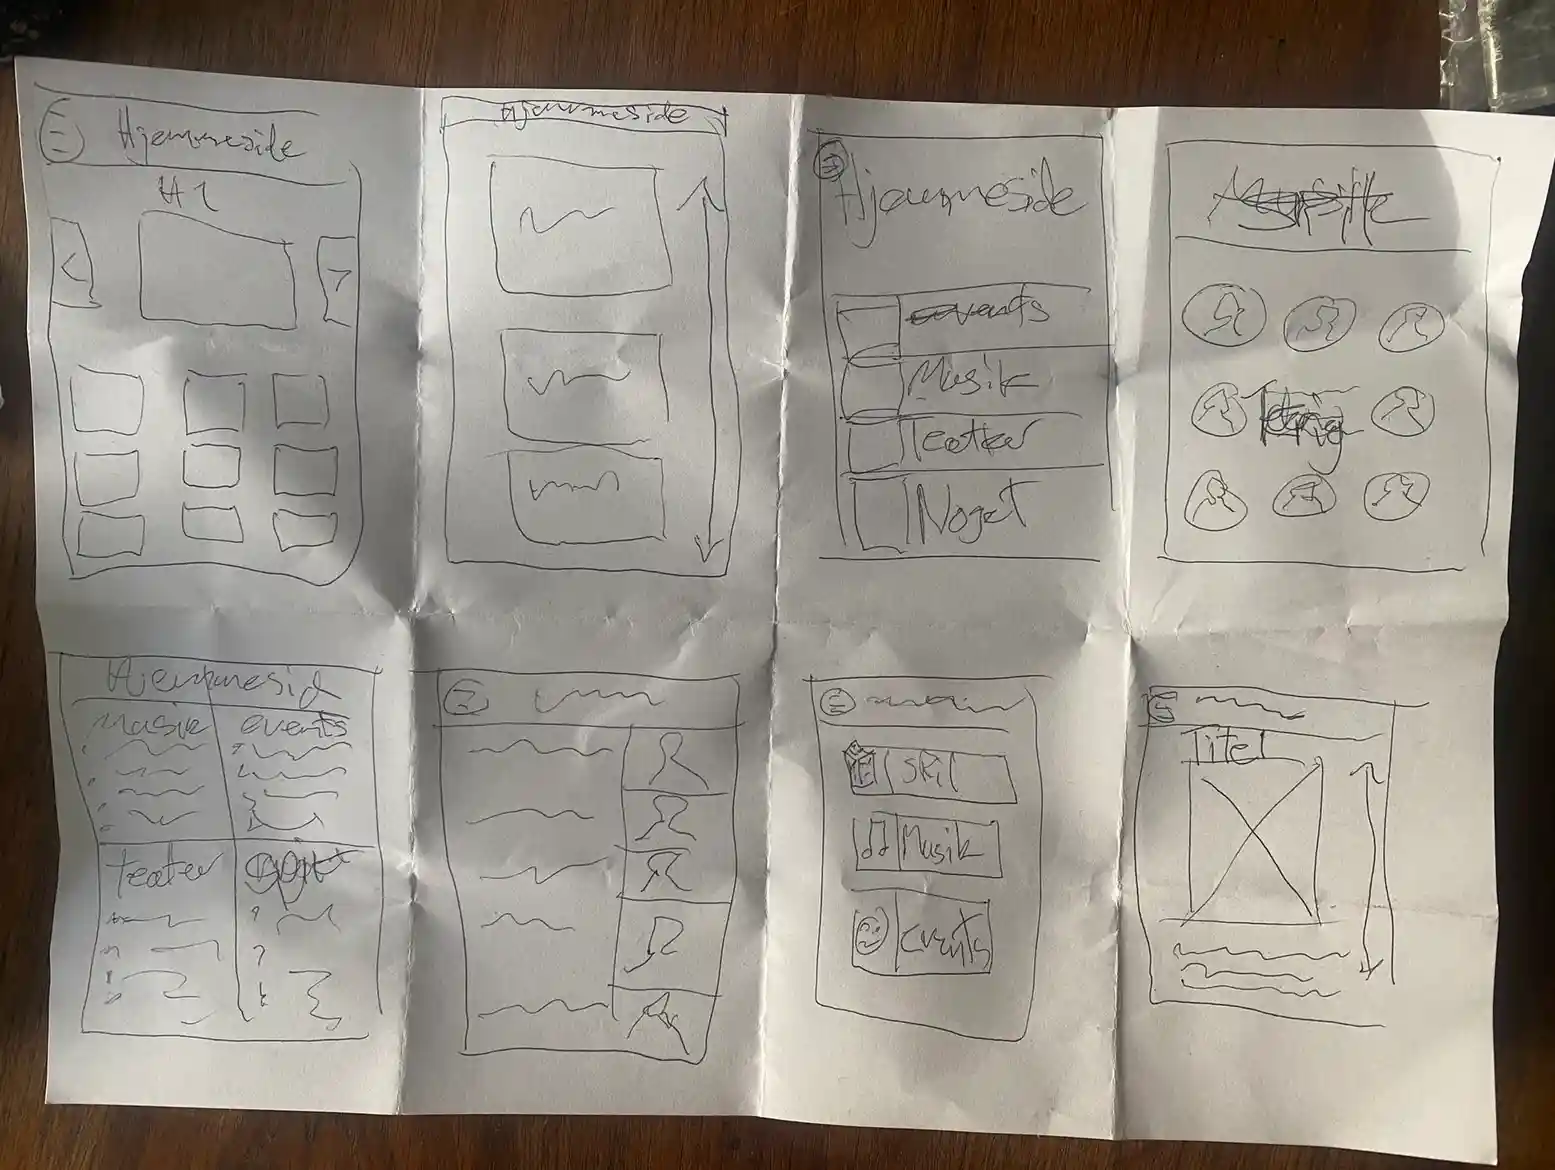 Hjemmeside
H1
Hjemmeside
Hjemmeside
events
Musik
Teater
Noget
Musik
Hjemmesid
Musik
events
teater
Spil
Musik
events
Titel